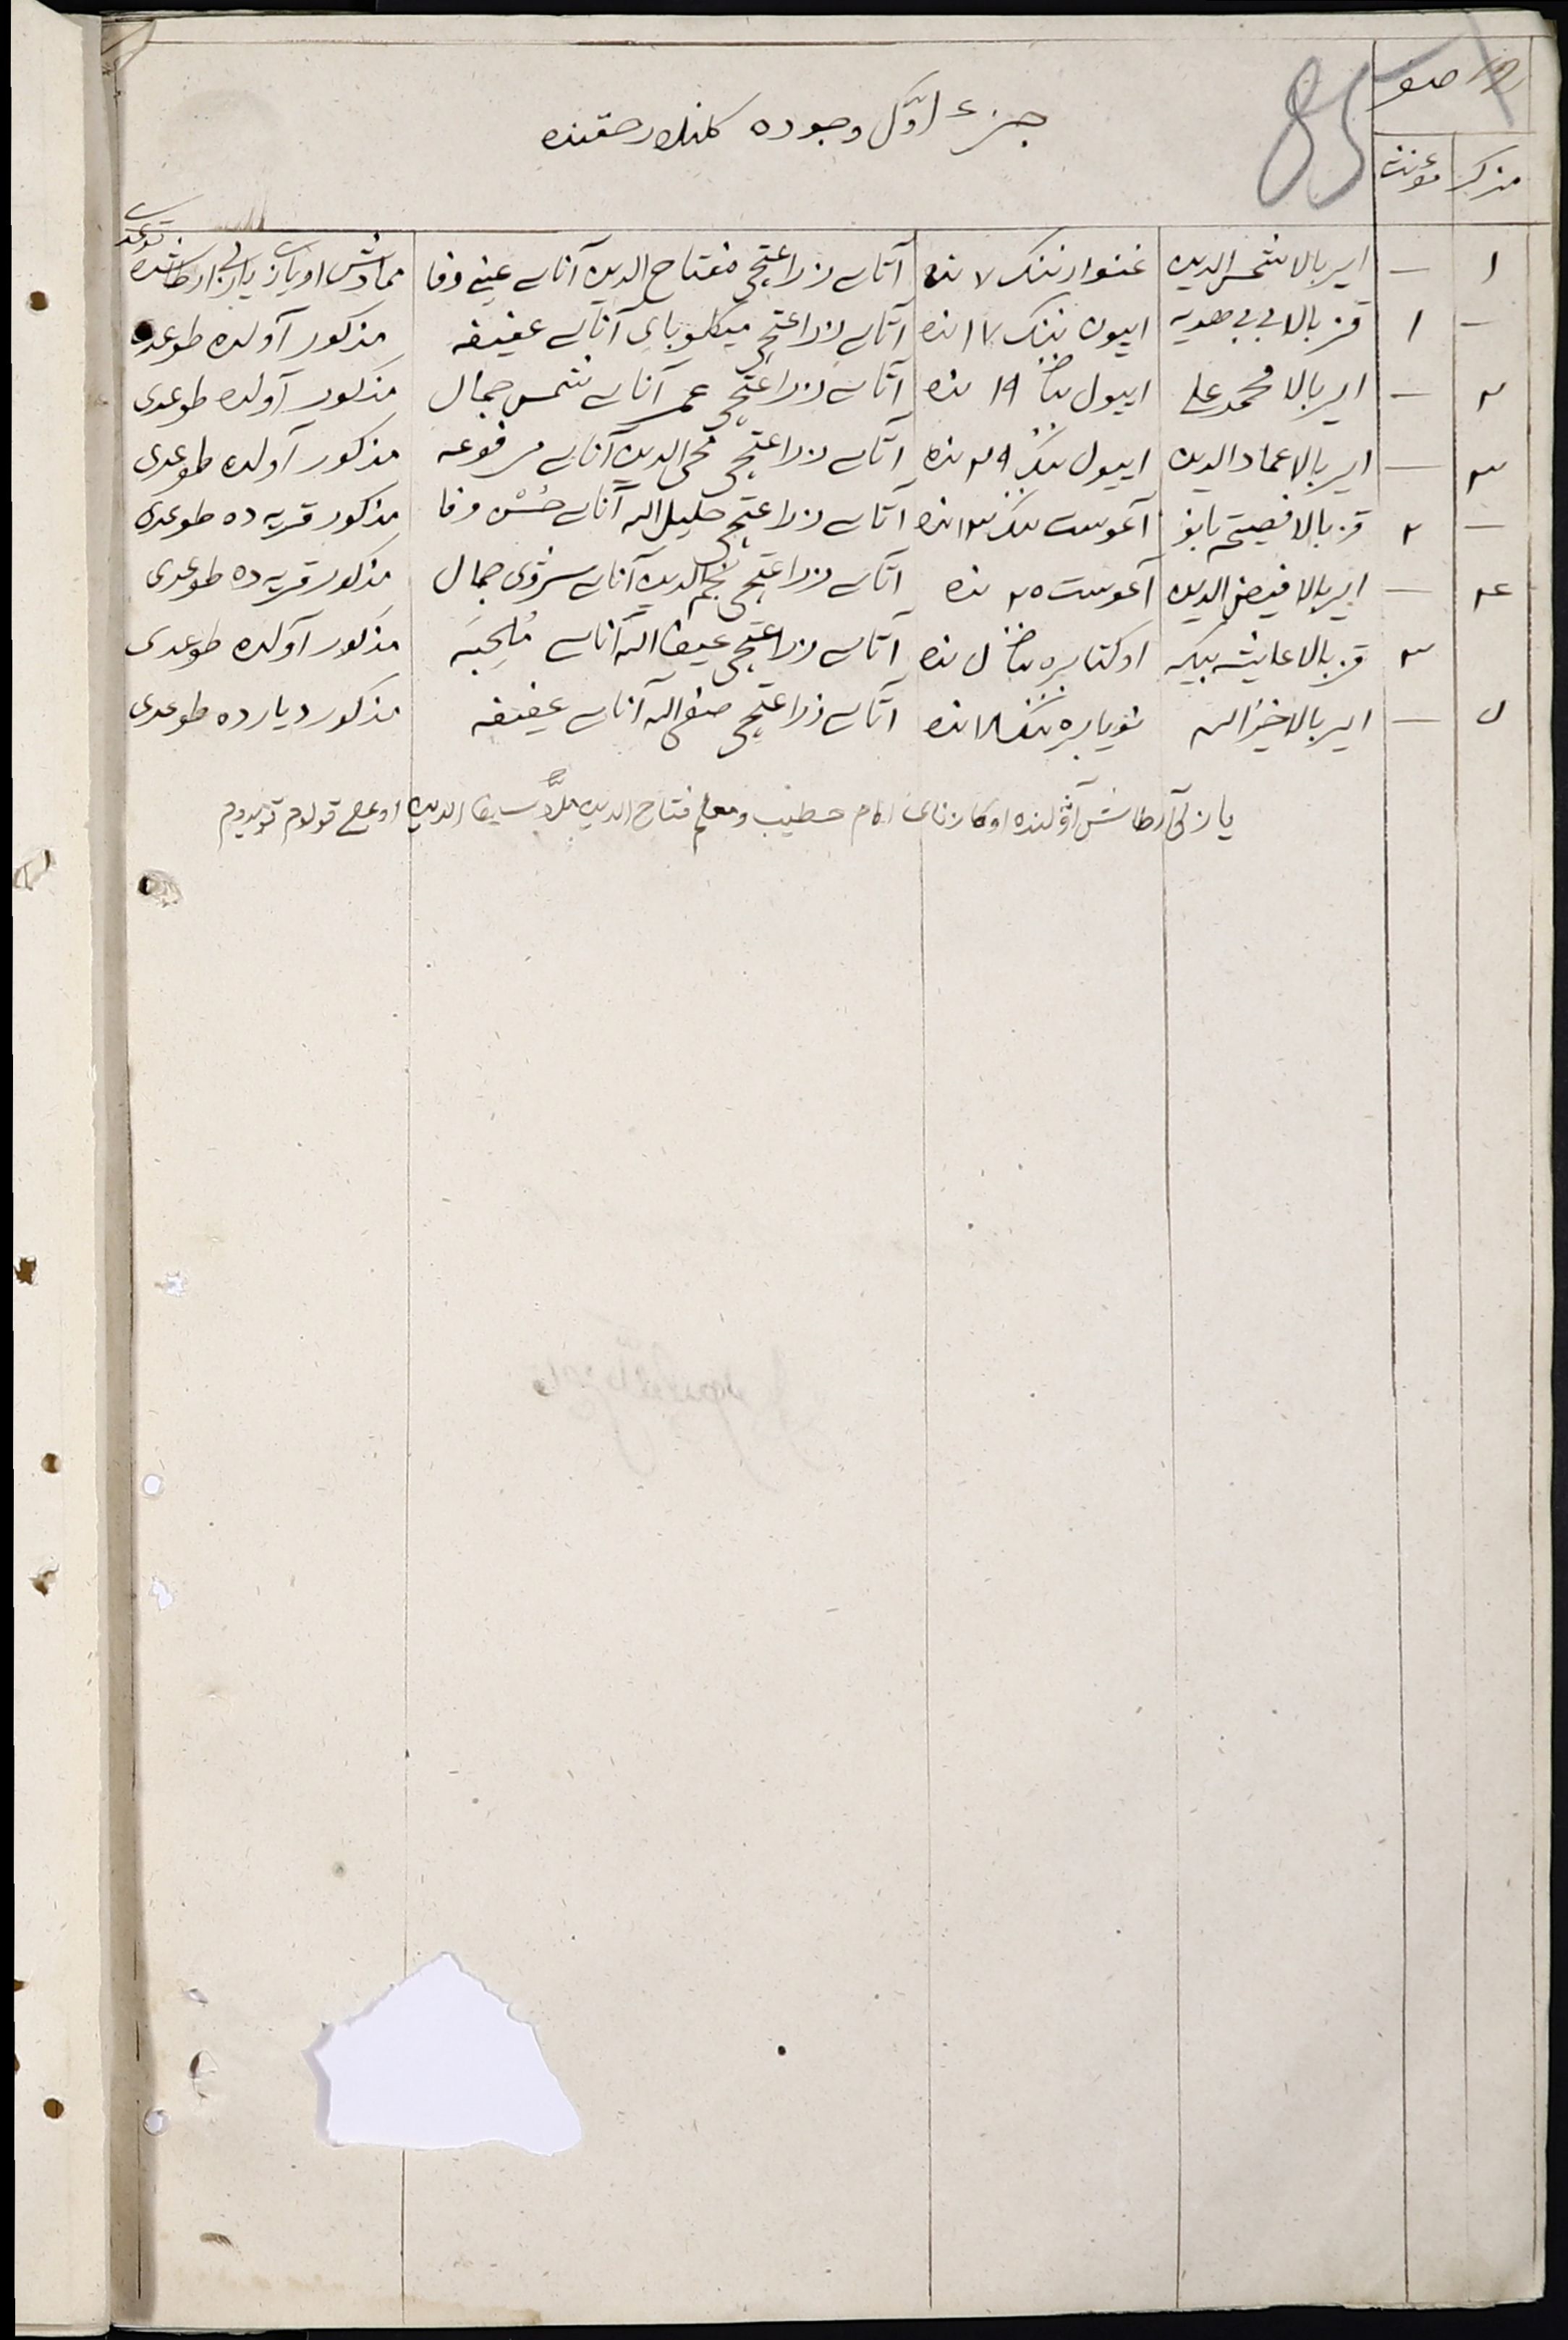 صفر
85
جزء اوّل وجوده کلنلار حقنده
مذکر مؤنث
۱ — ایر بالا شمس الدین غنوار ننک ۷ نده آتاسی زراعتچی مفتاح الدین آناسی عینی وفا
— ۱ قز بالا بی بی هدیه اییون ننک ۱۷ نده آتاسی زراعتچی میکلوبای آناسی عفیفه مذکور آولده طوغدی
۲ — ایر بالا محمد علی اییول ننک ۱۹ نده آتاسی زراعتچی عمر آناسی شمس جمال مذکور آولده طوغدی
۳ — ایر بالا عماد الدین اییول ننک ۲۹ نده آتاسی زراعتچی محی الدین آناسی مرفوعه مذکور آولده طوغدی
— ۲ قز بالا آغوست ننک ۱۳ نده آتاسی زراعتچی خلیل الله آناسی حُسْن وفا مذکور قریه ده طوغدی
۴ — ایر بالا فیض الدین آغوست ۲۵ نده آتاسی زراعتچی نجم الدین آناسی جمال مذکور قریه ده طوغدی
— ۳ قز بالا عایشه بیکه اوکتابره ننک ۵ نده آتاسی زراعتچی آناسی مذکور آولده طوغدی
۵ — ایر بالا خیر الله نویابره ننک ۱۸ نده آتاسی زراعتچی صفی الله آناسی عفیفه مذکور دیارده طوغدی
امام خطیب ومعلم فتاح الدین ملّا سیف الدین اوغلی قولوم قویدوم